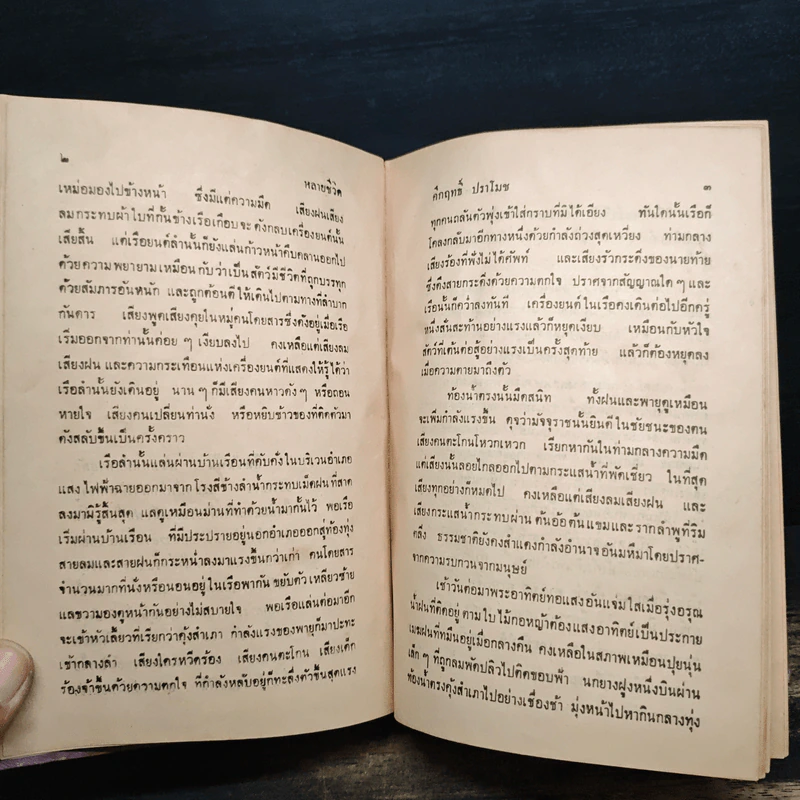 ๒
หลายชีวิต
เหม่อมองไปข้างหน้า ซึ่งมีแต่ความมืด เสียงฝนเสียง
ลมกระทบผ้าใบที่กั้นข้างเรือเกือบจะดังกลบเครื่องยนต์นั้น
เสียสิ้น แต่เรือยนต์ลำนั้นก็ยังแล่นก้าวหน้าคืบคลานออกไป
ด้วยความพยายามเหมือนกับว่าเป็นสัตว์มีชีวิตที่ถูกบรรทุก
ด้วยสัมภาระอันหนัก และถูกต้อนตีให้เดินไปตามทางที่ลำบาก
กันดาร เสียงพูดเสียงคุยในหมู่คนโดยสารซึ่งดังอยู่เมื่อเรือ
เริ่มออกจากท่านั้นค่อย ๆ เงียบลงไป คงเหลือแต่เสียงลม
เสียงฝน และความกระเทือนแห่งเครื่องยนต์ที่แสดงให้รู้ได้ว่า
เรือลำนั้นยังเดินอยู่ นาน ๆ ก็มีเสียงคนหาวดัง ๆ หรือถอน
หายใจ เสียงคนเปลี่ยนท่านั่ง หรือหยิบข้าวของที่ติดตัวมา
ดังสลับขึ้นเป็นครั้งคราว
เรือลำนั้นแล่นผ่านบ้านเรือนที่คับคั่งในบริเวณอำเภอ
แสงไฟฟ้าฉายออกมาจากโรงสีข้างลำน้ำกระทบเม็ดฝนที่สาด
ลงมามิรู้สิ้นสุด แลดูเหมือนม่านที่ทำด้วยน้ำมากั้นไว้ พอเรือ
เริ่มผ่านบ้านเรือน ที่มีประปรายอยู่นอกอำเภอออกสู่ท้องทุ่ง
สายลมและสายฝนก็กระหน่ำลงมาแรงขึ้นกว่าเก่า คนโดยสาร
จำนวนมากที่นั่งหรือนอนอยู่ในเรือพากันขยับตัว เหลียวซ้าย
แลขวามองดูหน้ากันอย่างไม่สบายใจ พอเรือแล่นต่อมาอีก
จะเข้าหัวเลี้ยวที่เรียกว่าคุ้งสำเภา กำลังแรงของพายุก็มาปะทะ
เข้ากลางลำ เสียงใครหวีดร้อง เสียงคนตะโกน เสียงเด็ก
ร้องจ้าขึ้นด้วยความตกใจ ที่กำลังหลับอยู่ก็ทะลึ่งตัวขึ้นสุดแรง
คึกฤทธิ์ ปราโมช
๓
ทุกคนถลันตัวพุ่งเข้าใส่กราบที่มิได้เอียง ทันใดนั้นเรือก็
โคลงกลับมาอีกทางหนึ่งด้วยกำลังถ่วงสุดเหวี่ยง ท่ามกลาง
เสียงร้องที่ฟังไม่ได้ศัพท์ และเสียงรัวกระดิ่งของนายท้าย
ซึ่งดึงสายกระดิ่งด้วยความตกใจ ปราศจากสัญญาณใด ๆ และ
เรือนั้นก็คว่ำลงทันที เครื่องยนต์ในเรือคงเดินต่อไปอีกครู่
หนึ่งสั่นสะท้านอย่างแรงแล้วก็หยุดเงียบ เหมือนกับหัวใจ
สัตว์ที่เต้นต่อสู้อย่างแรงเป็นครั้งสุดท้าย แล้วก็ต้องหยุดลง
เมื่อความตายมาถึงตัว
ท้องน้ำตรงนั้นมืดสนิท ทั้งฝนและพายุดูเหมือน
จะเพิ่มกำลังแรงขึ้น ดุจว่ามัจจุราชนั้นยินดีในชัยชนะของตน
เสียงคนตะโกนโหวกเหวก เรียกหากันในท่ามกลางความมืด
แต่เสียงนั้นลอยไกลออกไปตามกระแสน้ำที่พัดเชี่ยว ในที่สุด
เสียงทุกอย่างก็หมดไป คงเหลือแต่เสียงลมเสียงฝน และ
เสียงกระแสน้ำกระทบผ่านต้นอ้อต้นแขมและรากลำพูที่ริม
ตลิ่ง ธรรมชาติยังคงสำแดงกำลังอำนาจอันมหึมาโดยปราศ-
จากความรบกวนจากมนุษย์
เช้าวันต่อมาพระอาทิตย์ทอแสงอันแจ่มใสเมื่อรุ่งอรุณ
น้ำฝนที่ติดอยู่ตามใบไม้กอหญ้าต้องแสงอาทิตย์เป็นประกาย
เมฆฝนที่มืนอยู่เมื่อกลางคืน คงเหลือในสภาพเหมือนปุยนุ่น
เล็ก ๆ ที่ถูกลมพัดปลิวไปติดขอบฟ้า นกยางฝูงหนึ่งบินผ่าน
ท้องน้ำตรงคุ้งสำเภาไปอย่างเชื่องช้า มุ่งหน้าไปหากินกลางทุ่ง